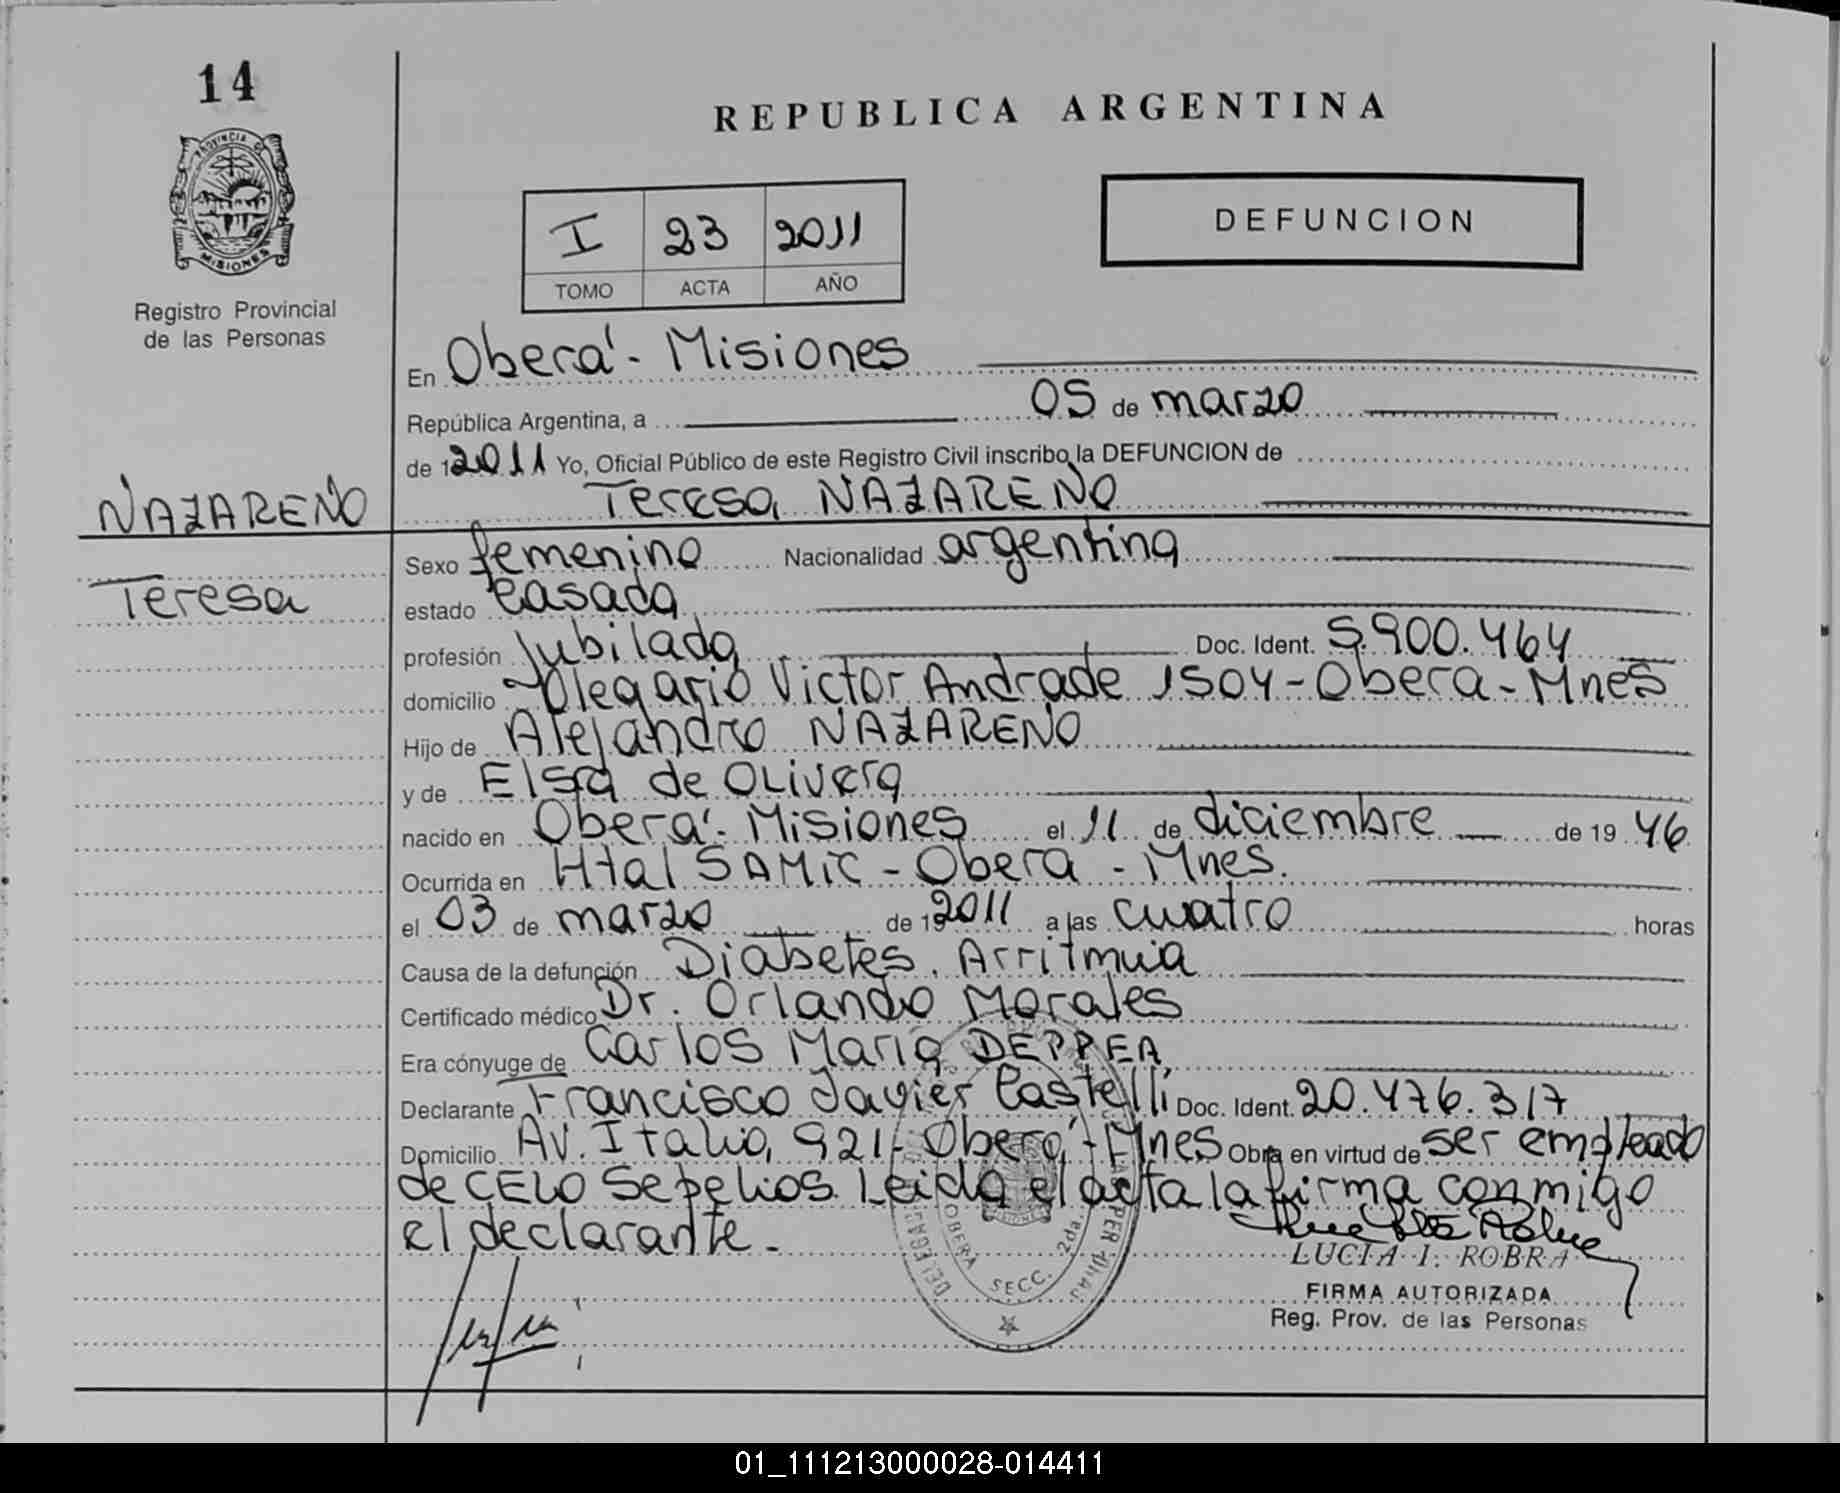 14
PROVINCIA DE
MISIONES
Registro Provincial
de las Personas
REPUBLICA ARGENTINA
I 23 2011
TOMO ACTA AÑO
DEFUNCION
En Oberá - Misiones
República Argentina, a 05 de marzo
de 2011 Yo, Oficial Público de este Registro Civil inscribo la DEFUNCION de
NAZARENO
Teresa NAZARENO
Teresa
Sexo femenino Nacionalidad argentina
estado Casada
profesión Jubilada Doc. Ident. 5.900.464
domicilio Olegario Victor Andrade 1504 - Obera - Mnes
Hijo de Alejandro NAZARENO
y de Elsa de OLivera
nacido en Oberá - Misiones el 11 de diciembre de 19 46
Ocurrida en Htal SAMIC - Obera - Mnes.
el 03 de marzo de 2011 a las cuatro horas
Causa de la defunción Diabetes. Arritmia
Certificado médico Dr. Orlando Morales
Era cónyuge de Carlos Maria DEPPEA
Declarante Francisco Javier Castelli Doc. Ident. 20.476.317
Domicilio Av. Italia, 921 - Oberá - Mnes Obra en virtud de ser empleado
de CELO Sepelios. Leida el acta la firma conmigo
el declarante.-
OBERA SECC. 2da.
LUCIA I. ROBRA
FIRMA AUTORIZADA
Reg. Prov. de las Personas
01_111213000028-014411